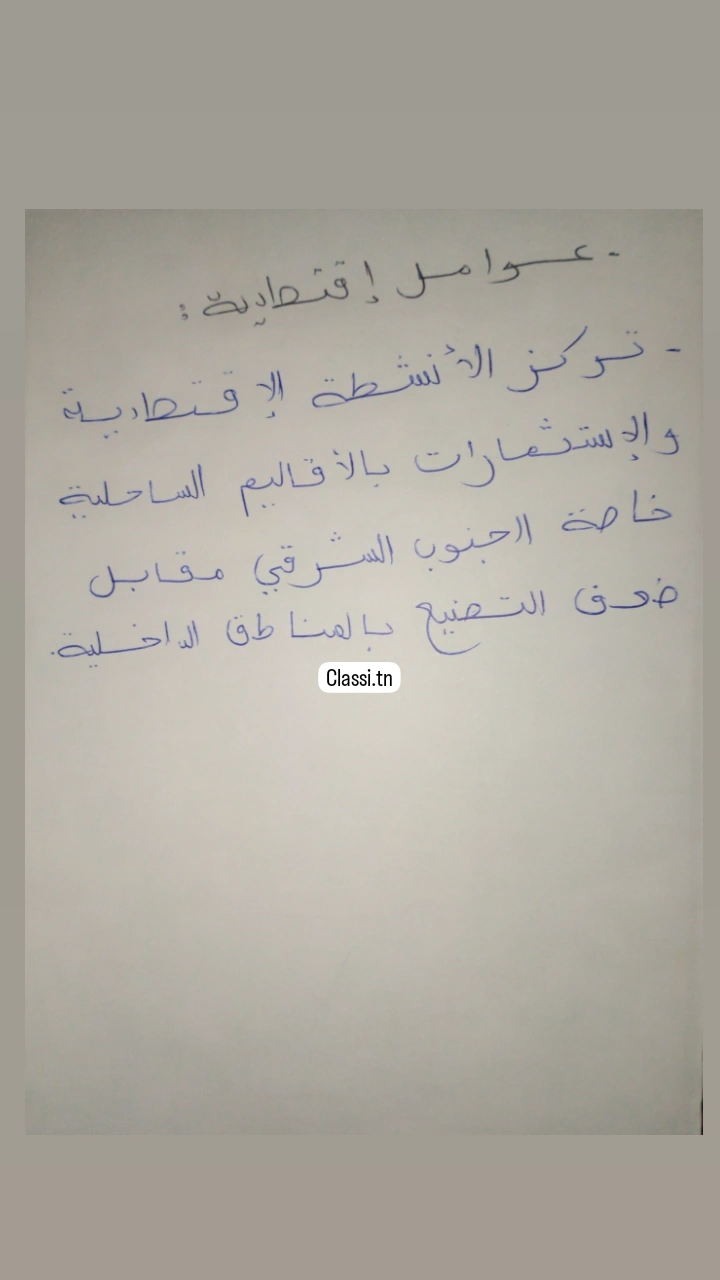 - عوامل إقتصادية :
- تركز الأنشطة الإقتصادية
والإستثمارات بالأقاليم الساحلية
خاصة الجنوب الشرقي مقابل
ضعف التصنيع بالمناطق الداخلية.
Classi.tn